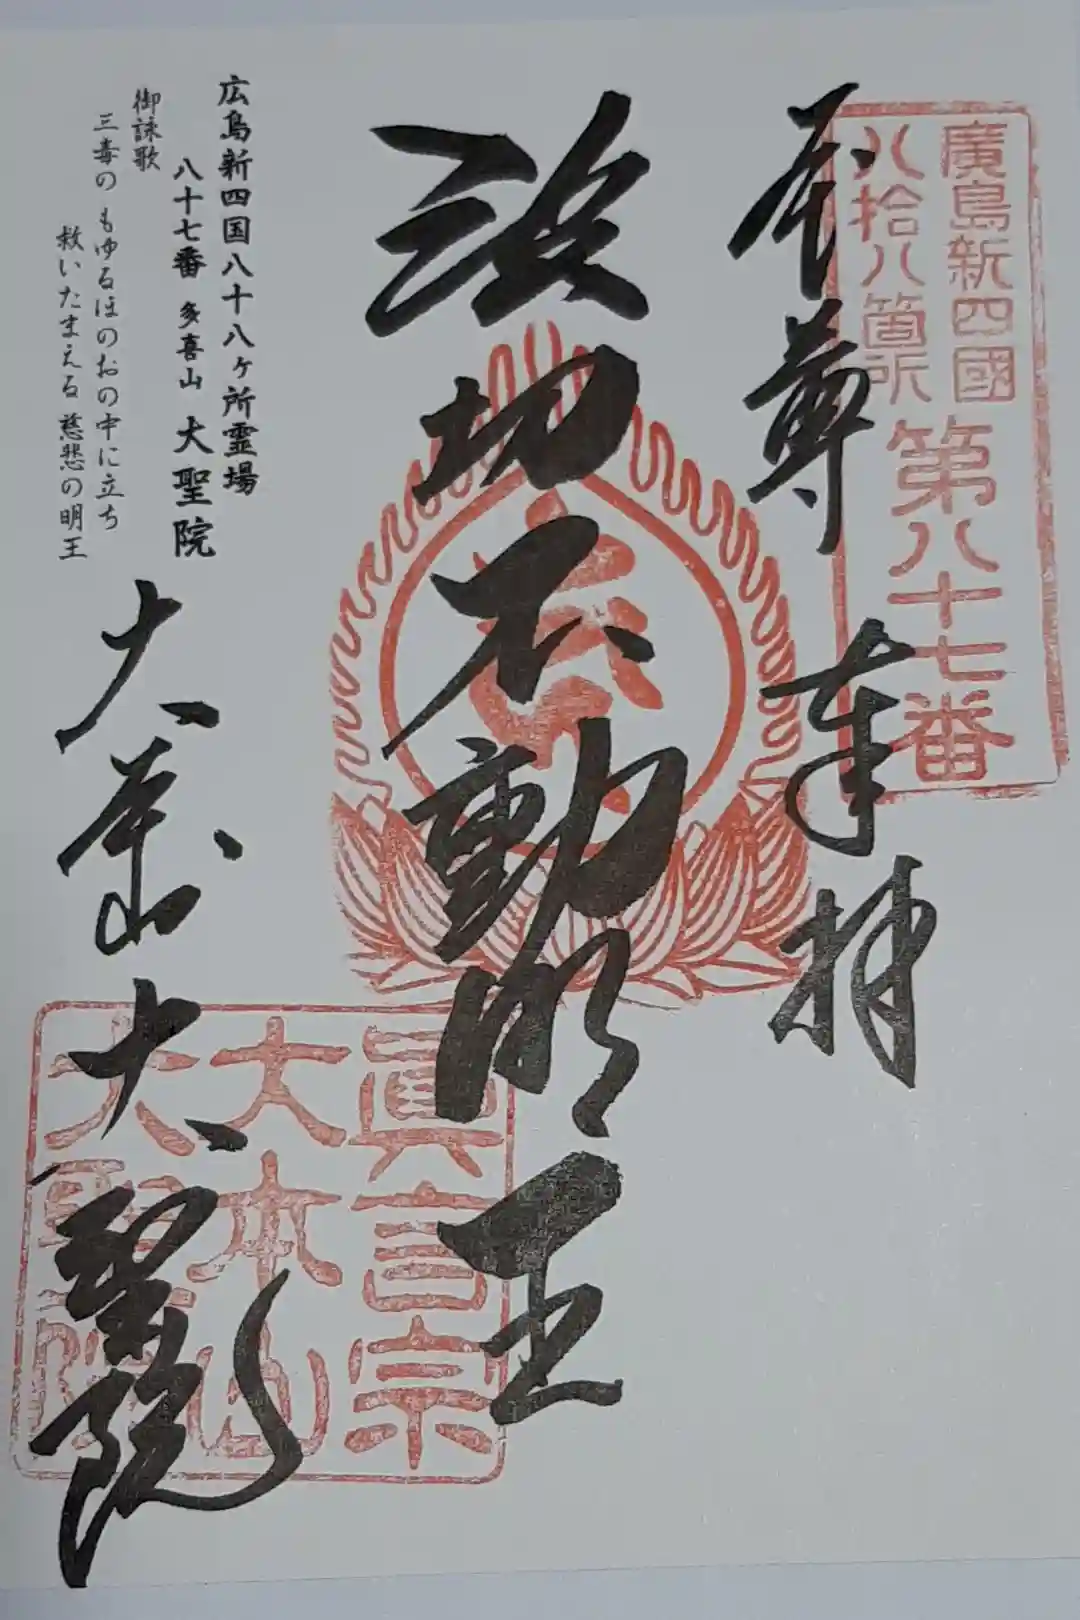 廣島新四國
八拾八箇所
第八十七番
本尊 奉拝
波切不動明王
眞言宗
大本山
大聖院
広島新四国八十八ヶ所霊場
八十七番 多喜山 大聖院
御詠歌
三毒の もゆるほのおの中に立ち
救いたまえる 慈悲の明王
大本山大聖院